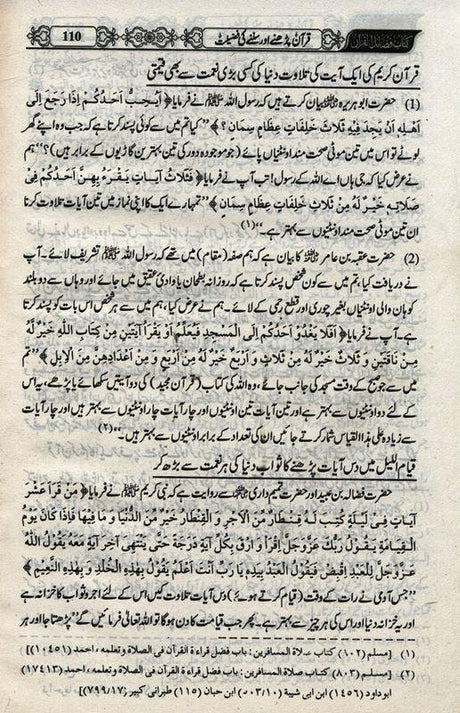 110
قرآن پڑھنے اور سننے کی فضیلت
کتاب فضائل القرآن
قرآن کریم کی ایک آیت کی تلاوت دنیا کی کسی بڑی نعمت سے بھی قیمتی
(1) حضرت ابو ہریرہ رضی اللہ عنہ بیان کرتے ہیں کہ رسول اللہ ﷺ نے فرمایا ﴿أَيُحِبُّ أَحَدُكُمْ إِذَا رَجَعَ إِلَى
أَهْلِهِ أَنْ يَجِدَ فِيهِ ثَلَاثَ خَلِفَاتٍ عِظَامٍ سِمَانٍ؟﴾ ”کیا تم میں سے کوئی پسند کرتا ہے کہ جب وہ اپنے گھر
لوٹے تو اس میں تین موٹی صحت مند اونٹنیاں پائے (جو موجودہ دور کی تین بہترین گاڑیوں کے برابر ہیں)؟“ ہم
نے عرض کیا کہ جی ہاں اے اللہ کے رسول! تب آپ نے فرمایا ﴿فَثَلَاثُ آيَاتٍ يَقْرَءُ بِهِنَّ أَحَدُكُمْ فِي
صَلَاتِهِ خَيْرٌ لَهُ مِنْ ثَلَاثِ خَلِفَاتٍ عِظَامٍ سِمَانٍ﴾ ”تمہارے ایک کا اپنی نماز میں تین آیات تلاوت کرنا
ان تین موٹی صحت مند اونٹنیوں سے بہتر ہے۔“(۱)
(2) حضرت عقبہ بن عامر رضی اللہ عنہ کا بیان ہے کہ ہم صفہ (مقام) میں تھے کہ رسول اللہ ﷺ تشریف لائے۔ آپ
نے دریافت کیا، تم میں سے کون شخص پسند کرتا ہے کہ وہ روزانہ بطحان یا وادی عقیق میں جائے اور وہاں سے دو بلند
کوہان والی اونٹنیاں بغیر چوری اور قطع رحمی کے لائے۔ ہم نے عرض کیا، ہم میں سے ہر شخص اس بات کو پسند کرتا
ہے۔ آپ نے فرمایا ﴿أَفَلَا يَغْدُوْ أَحَدُكُمْ إِلَى الْمَسْجِدِ فَيُعَلِّمُ أَوْ يَقْرَأُ آيَتَيْنِ مِنْ كِتَابِ اللَّهِ خَيْرٌ لَهُ
مِنْ نَاقَتَيْنِ وَ ثَلَاثٌ خَيْرٌ لَهُ مِنْ ثَلَاثٍ وَ أَرْبَعٌ خَيْرٌ لَهُ مِنْ أَرْبَعٍ وَ مِنْ أَعْدَادِهِنَّ مِنَ الْإِبِلِ﴾ ”تم
میں سے جو صبح کے وقت مسجد کی جانب جائے، وہ اللہ کی کتاب (قرآن مجید) کی دو آیتیں سکھائے یا پڑھے، یہ اس
کے لئے دو اونٹنیوں سے بہتر ہے اور تین آیات تین اونٹنیوں اور چار آیات چار اونٹنیوں سے بہتر ہیں اور چار آیات
سے زیادہ علی ہذا القیاس شمار کرتے جائیں ان کی تعداد کے برابر اونٹنیوں سے بہتر ہیں۔“(۲)
قیام اللیل میں دس آیات پڑھنے کا ثواب دنیا کی ہر نعمت سے بڑھ کر
حضرت فضالہ بن عبید اور حضرت تمیم داری سے روایت ہے کہ نبی کریم ﷺ نے فرمایا ﴿مَنْ قَرَأَ عَشْرَ
آيَاتٍ فِي لَيْلَةٍ كُتِبَ لَهُ قِنْطَارٌ مِنَ الْأَجْرِ وَ الْقِنْطَارُ خَيْرٌ مِنَ الدُّنْيَا وَ مَا فِيهَا فَإِذَا كَانَ يَوْمُ
الْقِيَامَةِ يَقُولُ رَبُّكَ عَزَّوَجَلَّ اِقْرَأْ وَ ارْقَ بِكُلِّ آيَةٍ دَرَجَةً حَتَّى يَنْتَهِيَ آخِرُ آيَةٍ مَعَهُ يَقُولُ اللَّهُ
عَزَّوَجَلَّ لِلْعَبْدِ اقْبِضْ فَيَقُولُ الْعَبْدُ بِيَدِهِ يَا رَبِّ أَنْتَ أَعْلَمُ يَقُولُ بِهَذِهِ الْخُلْدَ وَ بِهَذِهِ النَّعِيمَ﴾
”جس آدمی نے رات کے وقت (قیام کرتے ہوئے) دس آیات تلاوت کیں اس کے لئے اجر و ثواب کا خزانہ ہے
اور یہ خزانہ دنیا اور اس کی ہر چیز سے بہتر ہے۔ پھر جب قیامت کا دن ہوگا تو اللہ تعالیٰ فرمائیں گے ”پڑھتا جا اور ہر
(۱) [مسلم (۸۰۲) كتاب صلاة المسافرين: باب فضل قراءة القرآن في الصلاة وتعلمه، احمد (۱۰۴۵۱)]
(۲) [مسلم (۸۰۳) كتاب صلاة المسافرين: باب فضل قراءة القرآن في الصلاة وتعلمه، احمد (۱۷۴۱۳)
ابو داود (۱۴۵۶) ابن ابي شيبة (۵۰۳/۱۰) ابن حبان (۱۱۵) طبراني كبير (۷۹۹/۱۷)]